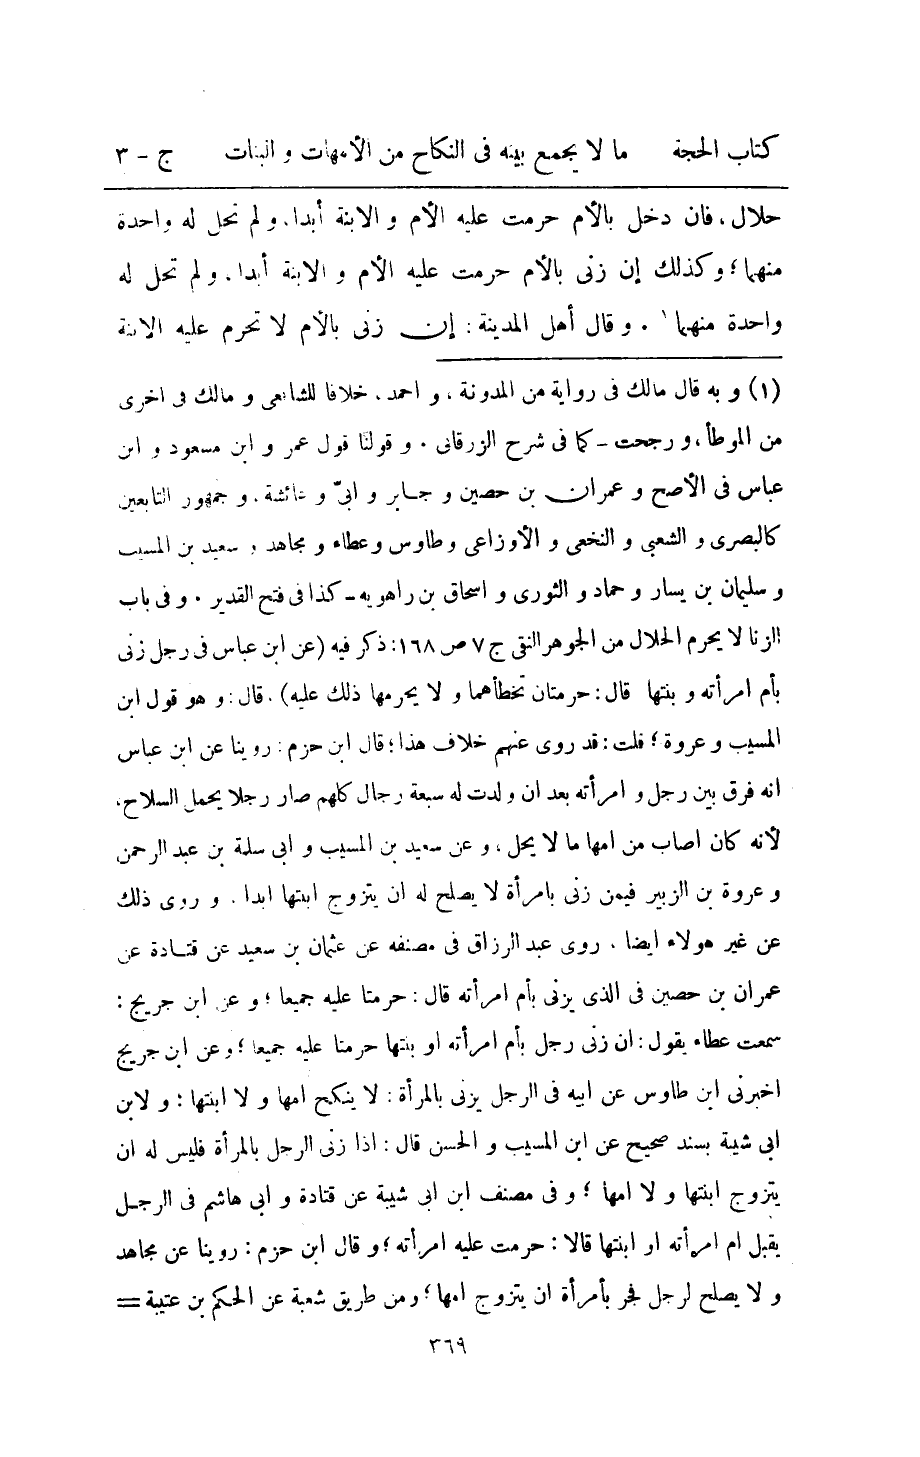 كتاب الحجة ما لا يجمع بينه فى النكاح من الأمهات و البنات ج - ٣
حلال، فان دخل بالأم حرمت عليه الأم و الابنة أبدا، و لم تحل له واحدة
منهما؛ و كذلك إن زنى بالأم حرمت عليه الأم و الابنة أبدا، و لم تحل له
واحدة منهما ١ . و قال أهل المدينة: إن زنى بالأم لا تحرم عليه الابنة
(١) و به قال مالك فى رواية من المدونة، و احمد، خلافا للشافعى و مالك فى اخرى
من الموطأ، و رجحت - كما فى شرح الزرقانى . و قولنا قول عمر و ابن مسعود و ابن
عباس فى الأصح و عمران بن حصين و جابر و ابىّ و عائشة، و جمهور التابعين
كالبصرى و الشعبى و النخعى و الأوزاعى و طاوس و عطاء و مجاهد و سعيد بن المسيب
و سليمان بن يسار و حماد و الثورى و اسحاق بن راهويه - كذا فى فتح القدير . و فى باب
الزنا لا يحرم الحلال من الجوهر النقى ج ٧ ص ١٦٨: ذكر فيه (عن ابن عباس فى رجل زنى
بأم امرأته و بنتها قال: حرمتان تخطأهما و لا يحرمها ذلك عليه) . قال: و هو قول ابن
المسيب و عروة؛ قلت: قد روى عنهم خلاف هذا؛ قال ابن حزم: روينا عن ابن عباس
انه فرق بين رجل و امرأته بعد ان ولدت له سبعة رجال كلهم صار رجلا يحمل السلاح،
لأنه كان اصاب من امها ما لا يحل، و عن سعيد بن المسيب و ابى سلمة بن عبد الرحمن
و عروة بن الزبير فيمن زنى بامرأة لا يصلح له ان يتزوج ابنتها ابدا . و روى ذلك
عن غير هولاء ايضا . روى عبد الرزاق فى مصنفه عن عثمان بن سعيد عن قتادة عن
عمران بن حصين فى الذى يزنى بأم امرأته قال: حرمتا عليه جميعا؛ و عن ابن جريج:
سمعت عطاء يقول: ان زنى رجل بأم امرأته او بنتها حرمتا عليه جميعا؛ و عن ابن جريج
اخبرنى ابن طاوس عن ابيه فى الرجل يزنى بالمرأة: لا ينكح امها و لا ابنتها؛ و لابن
ابى شيبة بسند صحيح عن ابن المسيب و الحسن قال: اذا زنى الرجل بالمرأة فليس له ان
يتزوج ابنتها و لا امها؛ و فى مصنف ابن ابى شيبة عن قتادة و ابى هاشم فى الرجل
يقبل ام امرأته او ابنتها قالا: حرمت عليه امرأته؛ و قال ابن حزم: روينا عن مجاهد
و لا يصلح لرجل فجر بأمرأة ان يتزوج امها؛ و من طريق شعبة عن الحكم بن عتيبة =
٣٦٩